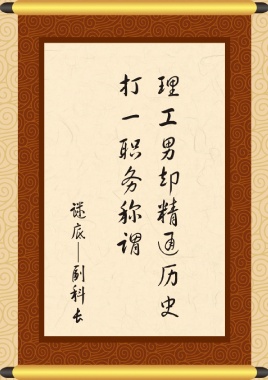 理工男却精通历史
打一职务称谓
谜底——副科长